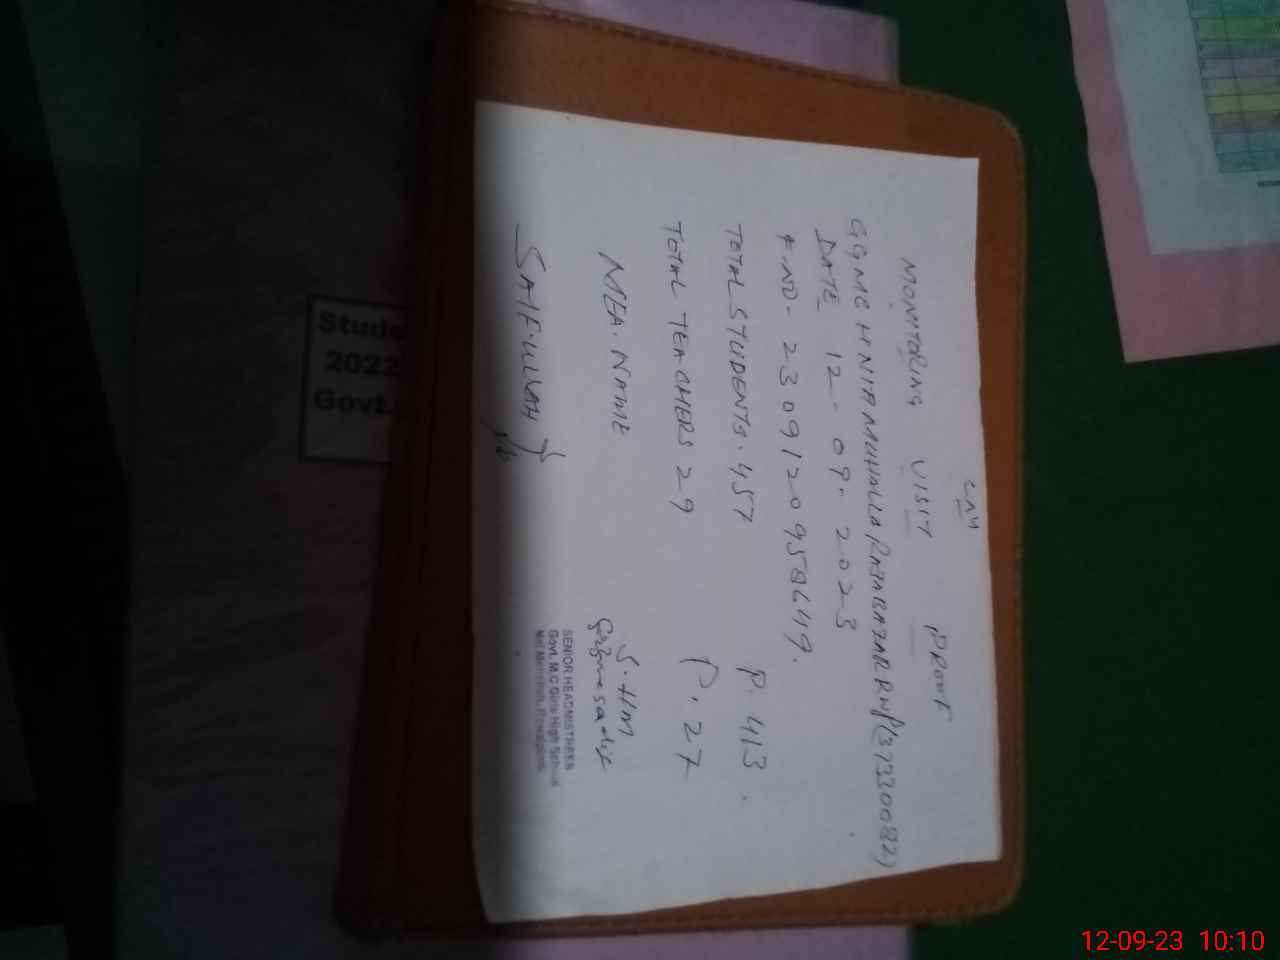 LAY
MONITORING VISIT PROOF
GGMCH NIA MUHALLA RAJABAZAR RWP (37330082)
DATE 12-09-2023
F.NO- 230912095864119.
TOTAL STUDENTS. 457 P. 413.
TOTAL TEACHERS 29 P. 27
MEA. NAME S.HM
SAIF.ULLAH
SENIOR HEADMISTRESS
Govt. M.C Girls High School
Rawalpindi
Stude
2022
Govt.
12-09-23 10:10